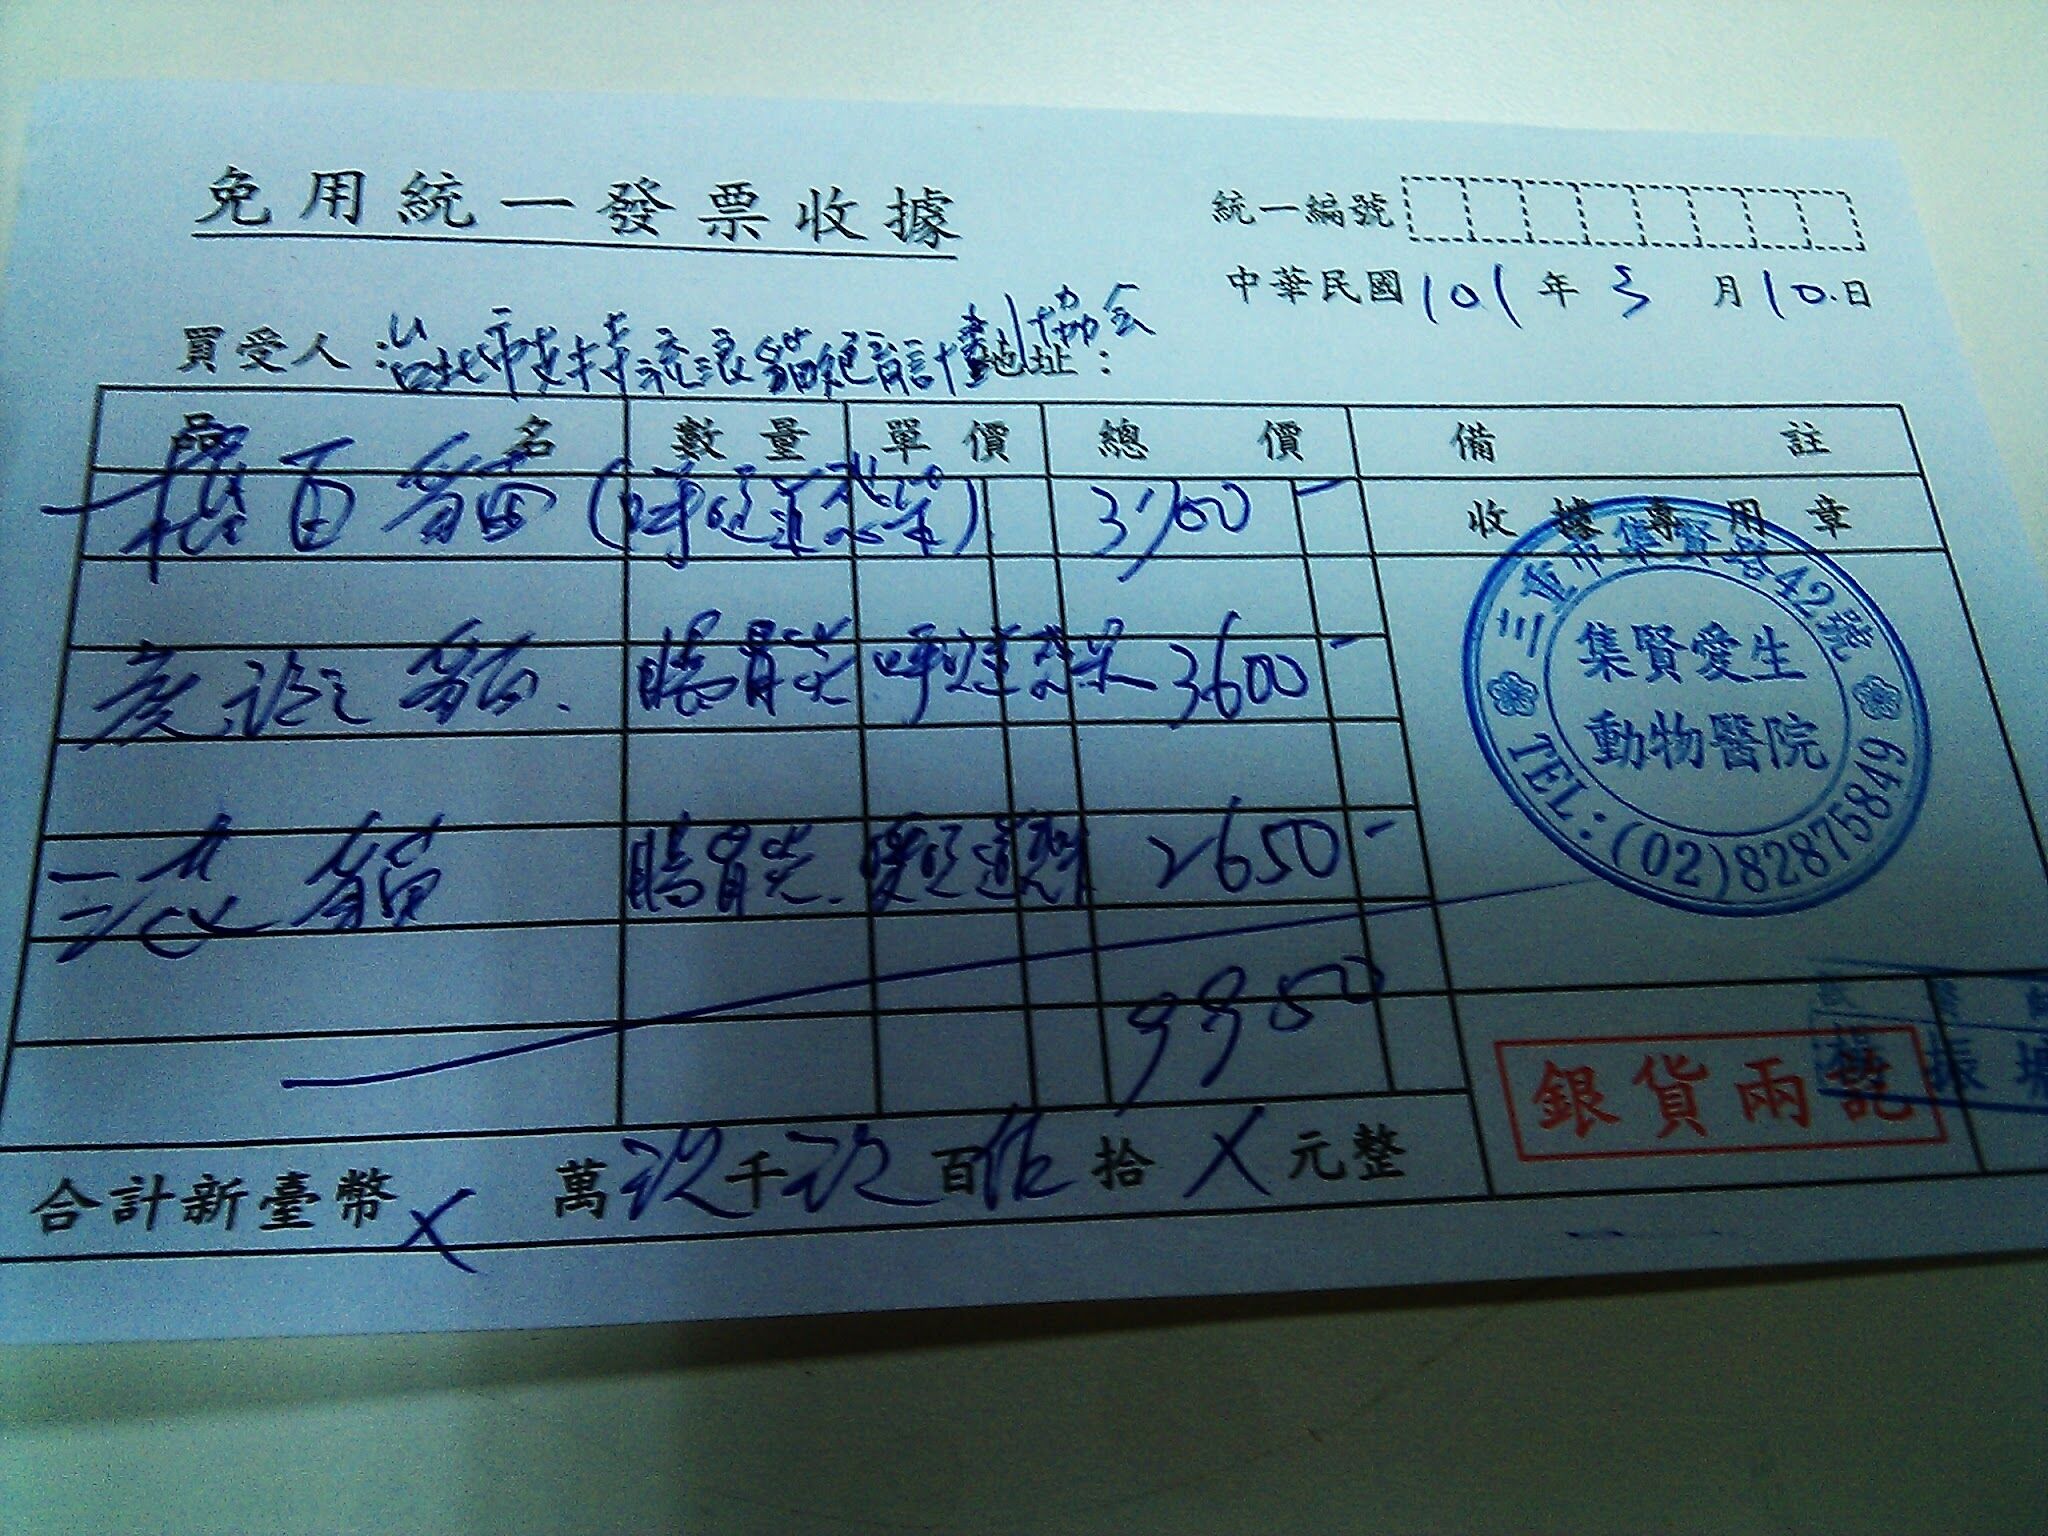 免用統一發票收據
統一編號
中華民國101年3月10日
買受人 台北市支持流浪貓絕育計畫協會 地址：
品名 數量 單價 總價 備註
橘白貓(呼吸道感染) 3700-
收據專用章
貓. 腸胃炎 呼吸道感染 3600-
三花貓 腸胃炎. 呼吸道 2650-
9950
三重市集賢路42號
集賢愛生
動物醫院
TEL:(02)82875849
銀貨兩訖
合計新臺幣 X 萬玖千玖百伍拾X元整